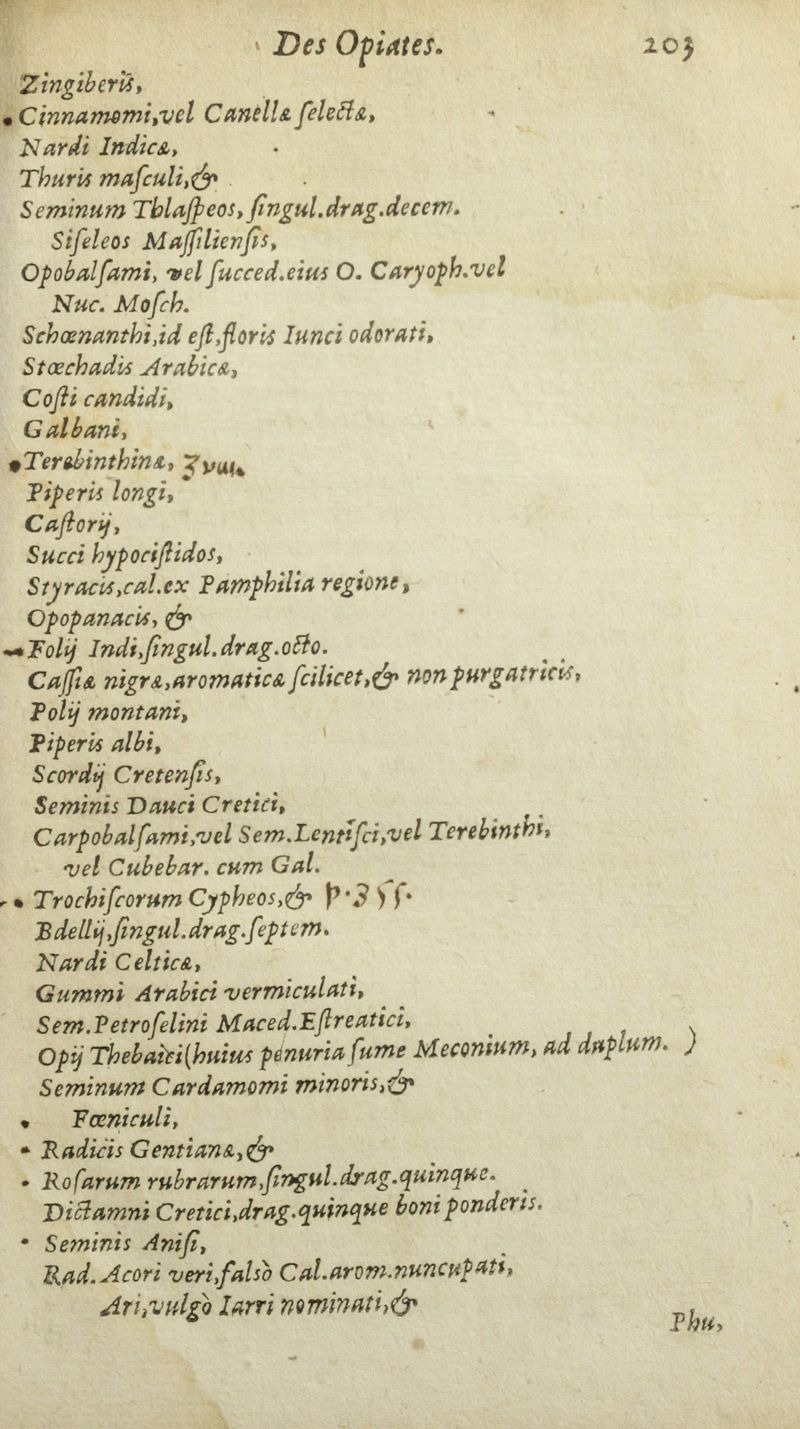 Des Opiates. 203
Zingiberis,
Cinnamomi,vel Canellæ selectæ,
Nardi Indicæ,
Thuris masculi,&
Seminum Thlaspeos, singul.drag.decem.
Siseleos Massiliensis,
Opobalsami, vel succed.eius O. Caryoph.vel
Nuc. Mosch.
Schœnanthi,id est,floris Iunci odorati,
Stœchadis Arabicæ,
Costi candidi,
Galbani,
Terebinthinæ,
Piperis longi,
Castorij,
Succi hypocistidos,
Styracis,cal.ex Pamphilia regione,
Opopanacis, &
Folij Indi,singul.drag.octo.
Cassiæ nigræ,aromaticæ scilicet,& non purgatricis,
Polij montani,
Piperis albi,
Scordij Cretensis,
Seminis Dauci Cretici,
Carpobalsami,vel Sem.Lentisci,vel Terebinthi,
vel Cubebar. cum Gal.
Trochiscorum Cypheos,&
Bdellij,singul.drag.septem.
Nardi Celticæ,
Gummi Arabici vermiculati,
Sem.Petroselini Maced.Estreatici,
Opij Thebaici(huius penuria sume Meconium, ad duplum. )
Seminum Cardamomi minoris,&
Fœniculi,
Radicis Gentianæ,&
Rosarum rubrarum,singul.drag.quinque.
Dictamni Cretici,drag.quinque boni ponderis.
Seminis Anisi,
Rad.Acori veri,falsò Cal.arom.nuncupati,
Ari,vulgò Iarri nominati,&
Phu,